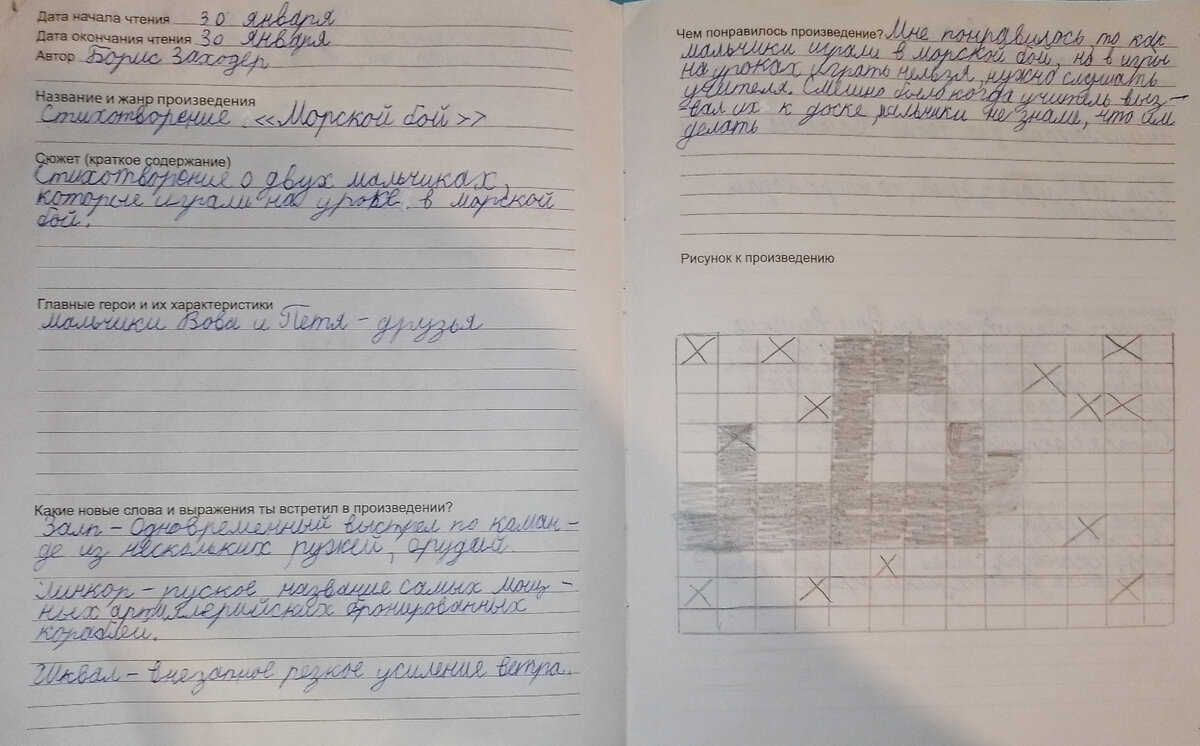 Дата начала чтения 30 января
Дата окончания чтения 30 января
Автор Борис Заходер
Название и жанр произведения
Стихотворение <<Морской бой>>
Сюжет (краткое содержание)
Стихотворение о двух мальчиках,
которые играли на уроке в морской
бой.
Главные герои и их характеристики
мальчики Вова и Петя - друзья
Какие новые слова и выражения ты встретил в произведении?
Залп - одновременный выстрел по коман-
де из нескольких ружей, орудий.
Линкор - русское название самых мощ-
ных артиллерийских бронированных
кораблей.
Шквал - внезапное резкое усиление ветра.
Чем понравилось произведение? Мне понравилось то как
мальчики играли в морской бой, но в игры
на уроках играть нельзя, нужно слушать
учителя. Смешно было когда учитель выз-
вал их к доске, мальчики не знали, что им
делать
Рисунок к произведению